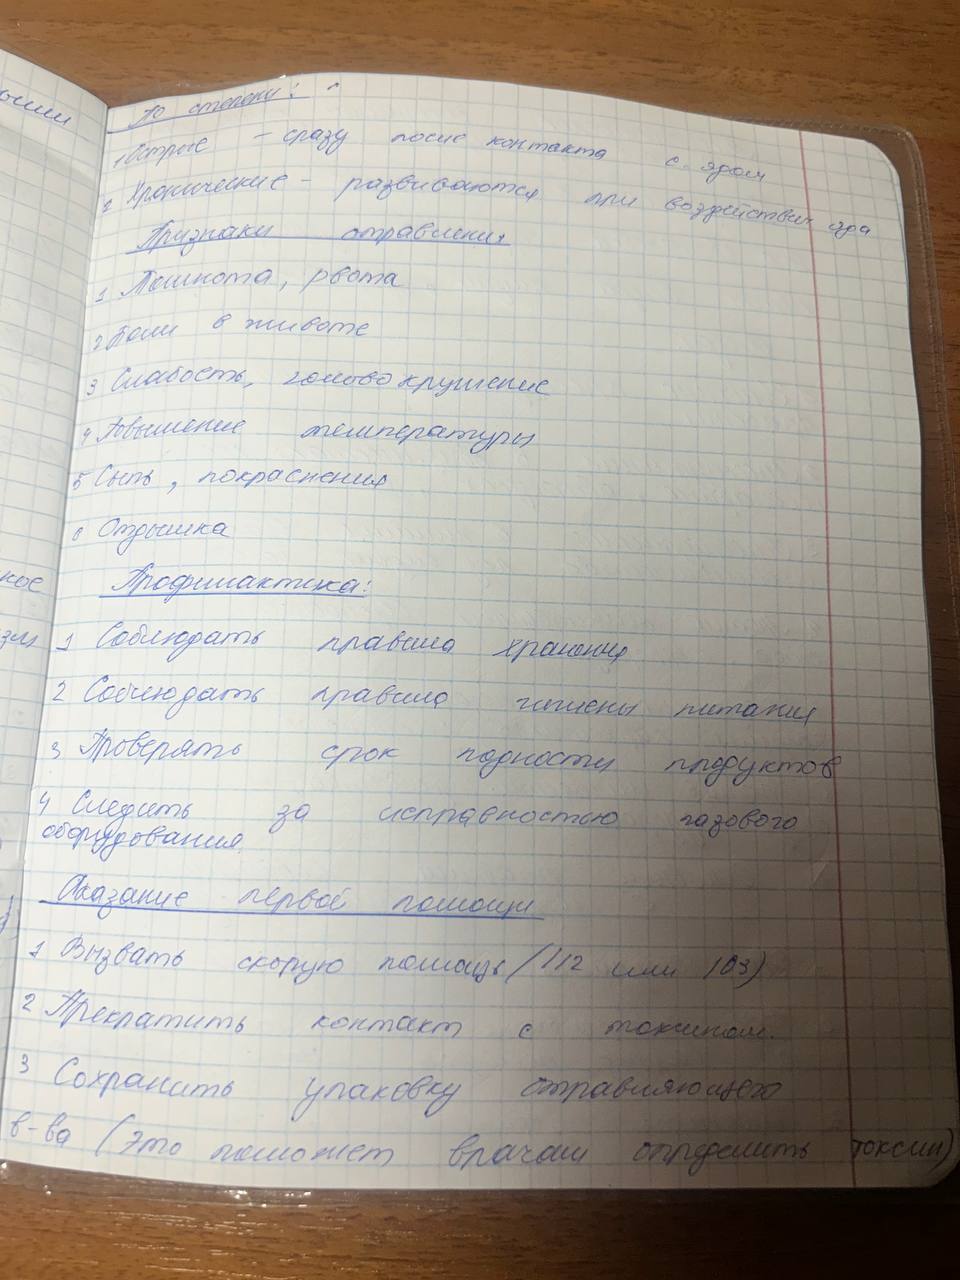 По степени:
1 Острые - сразу после контакта с ядом
2 Хронические - развиваются при воздействии яда
Признаки отравления
1 Тошнота, рвота
2 Боли в животе
3 Слабость, головокружение
4 Повышение температуры
5 Сыпь, покраснения
6 Отдышка
Профилактика:
1 Соблюдать правила хранения
2 Соблюдать правила гигиены питания
3 Проверять срок годности продуктов
4 Следить за исправностью газового
оборудования
Оказание первой помощи
1 Вызвать скорую помощь (112 или 103)
2 Прекратить контакт с токсином.
3 Сохранить упаковку отравляющего
в-ва (Это поможет врачам определить токсин)